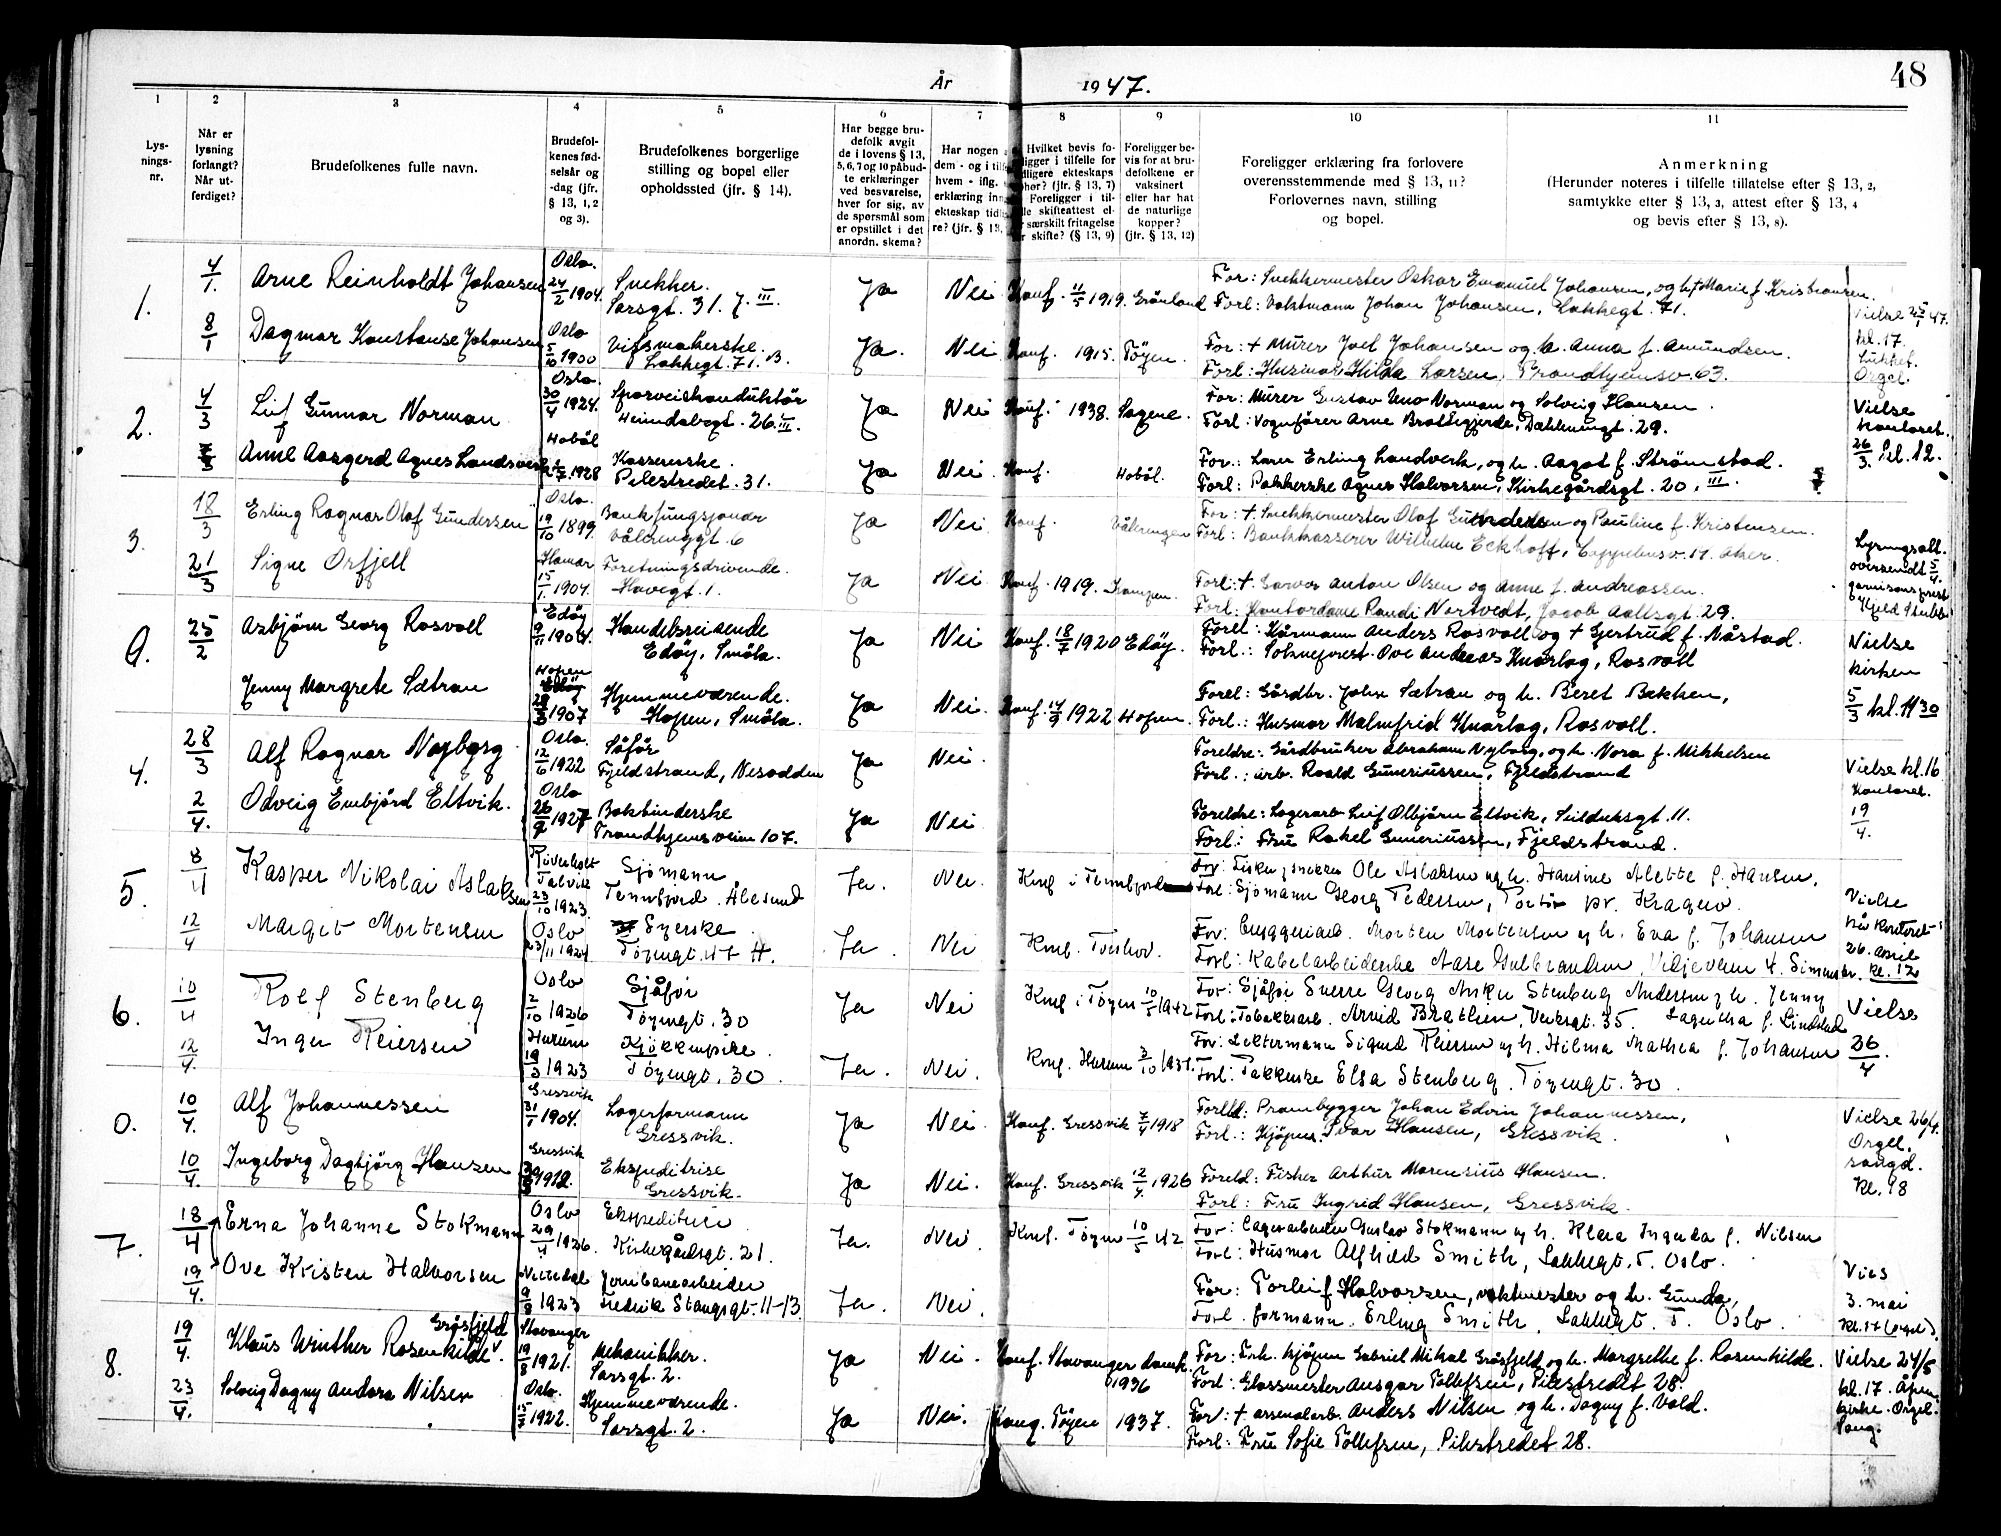 48
År 1947.
1 2 3 4 5 6 7 8 9 10 11
Lysnings-nr.
Når er lysning forlangt? Når utferdiget?
Brudefolkenes fulle navn.
Brudefolkenes fødselsår og -dag (jfr. § 13, 1, 2 og 3).
Brudefolkenes borgerlige stilling og bopel eller opholdssted (jfr. § 14).
Har begge brudefolk avgit de i lovens § 13, 5, 6, 7 og 10 påbudte erklæringer ved besvarelse, hver for sig, av de spørsmål som er opstillet i det anordn. skema?
Har nogen dem - og i tilf hvem - iflg. erklæring inn ekteskap tidl re? (jfr. § 13,
Hvilket bevis fo- ligger i tilfelle for dligere ekteskaps phør? (jfr. § 13, 7) Foreligger i til- le skifteattest el- r særskilt fritagelse r skifte? (§ 13, 9)
Foreligger bevis for at brudefolkene er vaksinert eller har hat de naturlige kopper? (jfr. § 13, 12)
Foreligger erklæring fra forlovere overensstemmende med § 13, 11? Forlovernes navn, stilling og bopel.
Anmerkning
(Herunder noteres i tilfelle tillatelse efter § 13, 2, samtykke efter § 13, 3, attest efter § 13, 4 og bevis efter § 13, 8).
1. 4/1. Arne Reinholdt Johansen Oslo. 24/2 1904. Snekker. Sarsgt. 31. 7. III. Ja Nei Konf. 11/5 1919. Grönland For: Snekkermester Oskar Emanuel Johansen, og h.† Marie f. Kristiansen.
Forl: Vaktmann Johan Johansen, Lakkegt. 71.
8/1 Dagmar Konstanse Johansen Oslo 5/10 1900 Lakkegt. 71. B. Ja. Nei Konf. 1915. Töyen. For: † Murer Joel Johansen og h. Anna f. Amundsen.
Forl: Husmor Hilda Larsen, Trondhjemsv. 63.
Vielse 25/1 47. kl. 17. Lukket. Orgel.
2. 4/3 Leif Gunnar Norman Oslo. 30/4 1924. Sporveiskonduktör Heimdalsgt. 26. III. Ja Nei Konf. 1938. Sagene. For: Murer Gustav Uno Norman og Solveig Hansen.
Forl: Vognförer Arne Brattegjerde, Dælenengt. 29.
Anne Aasgerd Agnes Landsverk Hobøl 1928 Kassererske. Pilestredet. 31. Ja Nei Konf. Hobøl. For.: Lærer Erling Landverk, og h. Aagot f. Strömstad.
Forl: Pakkerske Agnes Halvorsen, Kirkegårdsgt. 20, III.
Vielse kontoret. 26/3. kl. 12.
3. 18/3 Erling Ragnar Olaf Gundersen Oslo. 19/10 1899. Bankfungsjonær Vålerenggt. 6 Ja Nei. Konf. Vålerengen For: † Snekkermester Olaf Gundersen og Pauline f. Kristensen.
Forl: Bankkasserer Wilhelm Eckhoff, Cappelensv. 17. Aker.
21/3 Signe Orfjell Hamar 15/1. 1904. Foretningsdrivende. Havegt. 1. Ja Nei. Konf. 1919. Kampen. Forl: † Garver Anton Olsen og Anne f. Andreassen.
Forl: Kontordame Randi Nortvedt, Jacob Aallsgt. 29.
Lysningsatt. oversendt 5/4. garnisonsprest Kjeld Stubb
0. 25/2 Asbjörn Georg Rosvoll Edöy 9/11 1904. Handelsreisende Edöy, Smöla. Ja Nei Konf. 18/7 1920 Edöy. Forel: Kårmann Anders Rosvoll og † Gjertrud f. Nåstad.
Forl.: Sokneprest Ove Andreas Knarlag, Rosvoll
Jenny Margrete Sætran Hopen 1907 Hjemmeværende. Hopen, Smöla. Ja Nei. Konf. 14/9 1922 Hopen. Forel: Gårdbr. John Sætran og h. Beret Bekken,
Forl.: Husmor Malmfrid Knarlag, Rosvoll.
Vielse kirken 5/3 kl. 11 30
4. 28/3 Alf Ragnar Nyborg Oslo. 12/6 1922 Sjåför Fjeldstrand, Nesodden Ja Nei. Foreldre: Gårdbruker Abraham Nyborg, og h. Nora f. Mikkelsen
Forl.: arb. Roald Guneriussen, Fjeldstrand
2/4. Odveig Embjörd Eltvik. Oslo 1927 Bokbinderske Trondhjemsveien 107. Ja Nei Foreldre: Lagerarb. Leif Olbjörn Eltvik, Seilduksgt. 11.
Forl: Fru Rakel Guneriussen, Fjeldstrand.
Vielse kl. 16 Kontoret. 19/4.
5. 8/4 Kasper Nikolai Aslaksen Talvik 23/10 1923. Sjömann Tennfjord. Ålesund Ja. Nei. Konf. i Tennfjord For: Fisker Ole Aslaksen og h. Hansine Alette f. Hansen.
Forl: Sjömann Georg Pedersen, pr. Kragerö.
12/4 Margit Mortensen Oslo 23/11 1924 Syerske Töyengt. 47 H. Ja. Nei Konf. Torshov. For: Bryggeriarb. Morten Mortensen og h. Eva f. Johansen
Forl: Kabelarbeiderske Aase Gulbrandsen,
Vielse på kontoret 26. april kl. 12
6. 10/4 Rolf Stenberg Oslo 2/10 1926 Sjåför Töyengt. 30 Ja Nei Konf. i Töyen 10/5 1942 For: Sjåför Sverre Georg Stenberg Andersen og h. Jenny Lagertha f. Lindblad
Forl: Tobakksarb. Arvid Bråthen, Verksgt. 35.
12/4. Inger Reiersen Hurum 19/3 1923 Kjökkenpike. Töyengt. 30. Ja. Nei. Konf. Hurum 3/10 1937. For: Lektermann Sigurd Reiersen og h. Hilma Mathea f. Johansen
Forl: Pakkerske Elsa Stenberg. Töyengt. 30.
Vielse 26/4.
0. 10/4. Alf Johannessen Gressvik 31/1 1904. Lagerformann Gressvik. Ja Nei. Konf. Gressvik 7/4 1918 Foreld: Prambygger Johan Edvin Johannessen,
Forl.: Kjöpm. Ivar Hansen, Gressvik.
10/4. Ingeborg Dagbjörg Hansen Gressvik 1912. Ekspeditrise Gressvik. Ja Nei. Konf. Gressvik 12/4. 1926 Foreld: Fisker Arthur Marensius Hansen.
Forl: Fru Ingrid Hansen, Gressvik.
Vielse 26/4. Orgel. sangd. Kl. 18
7. 18/4 Erna Johanne Stokmann Oslo 29/4 1926. Ekspeditrise Kirkegårdsgt. 21. Ja. Nei. Konf. Töyen 10/5 42 For: Lagerarbeider Gustav Stokmann og h. Klara Ingerda f. Nilsen
Forl: Husmor Alfhild Smith, Lakkegt. 5. Oslo.
19/4. Ove Kristen Halvorsen Nittedal 9/8 1923 Jernbanearbeider Fredrik Stangsgt. 11-13 Ja. Nei. For: Torleif Halvorsen, vaktmester og h. Gunda,
Forl. formann. Erling Smith, Lakkegt. 5. Oslo.
Vies 3. mai kl. 17 (orgel).
8. 19/4. Klaus Winther Rosenkilde Gråsfjeld Stavanger 19/8 1921. Mekanikker. Sarsgt. 2. Ja Nei. Konf. Stavanger domk. 1936 For: Frh. kjöpm Gabriel Mikal Gråsfjeld og h. Margrethe f. Rosenkilde.
Forl: Glassmester Ansgar Tollefsen, Pilestredet 28.
23/4. Solveig Dagny Andora Nilsen Oslo. 1922. Hjemmeværende. Sarsgt. 2. Ja Nei. Töyen 1937. For: † arsenalarb. Anders Nilsen og h. Dagny f. Vold.
Forl: Fru Sofie Tollefsen, Pilestredet 28.
Vielse 24/5 kl. 17. Åpen kirke. Orgel. Sang.